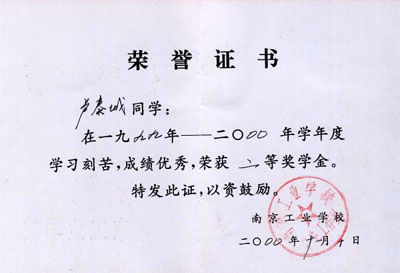 荣誉证书
卢泰城同学：
在一九九九年——二〇〇〇年学年度
学习刻苦，成绩优秀，荣获二等奖学金。
特发此证，以资鼓励。
南京工业学校
二〇〇〇年十月十日